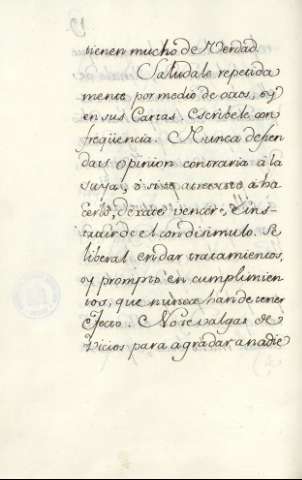 tienen mucho de Verdad.
Saludale repetida
mente por medio de otros, oy
en sus Cartas. Escribele con
freqüencia. Nunca defien
das opinion contraria á la
suya, ó si te atreves á ha
cerlo, dexate vencer, é ins
truir de el con disimulo. Se
liberal en dar tratamientos,
oy prompto en cumplimien
tos, que nunca han de tener
efecto. No te valgas de
Vicios para agradar a nadie